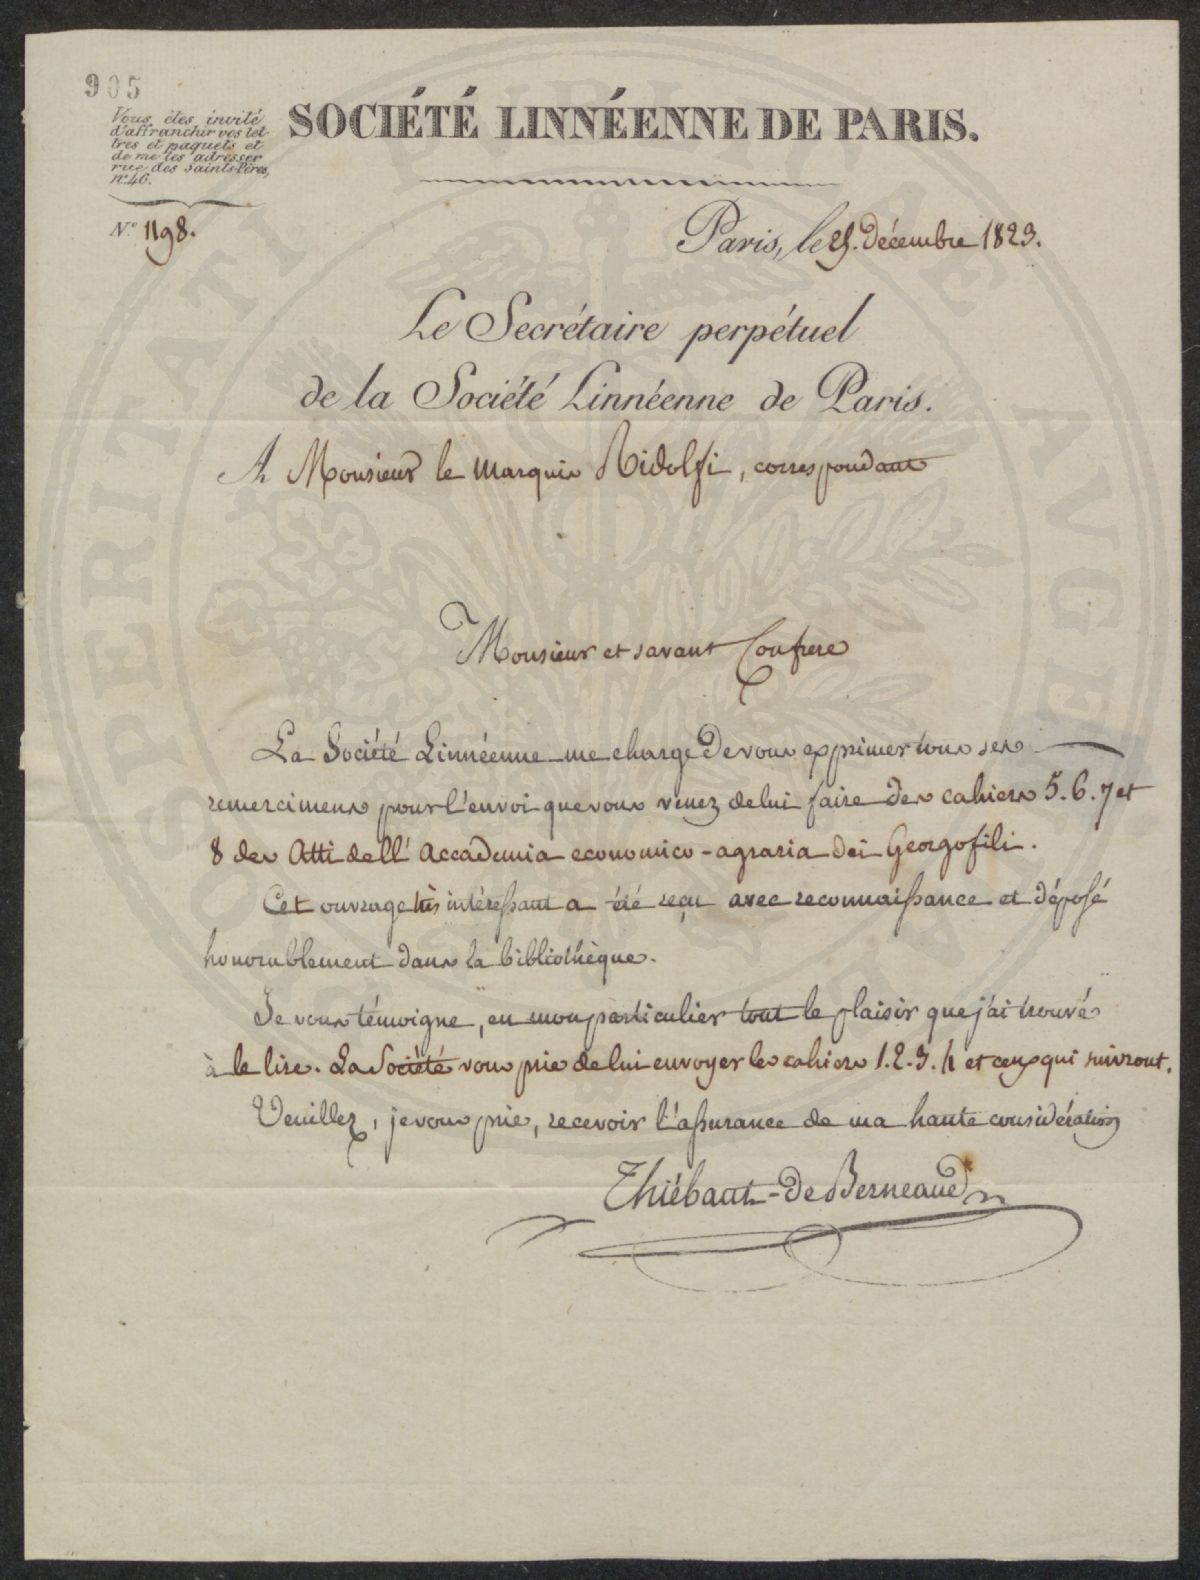 905
Vous êtes invité
d'affranchir vos let-
tres et paquets et
de me les adresser
rue des Saints-Pères,
n° 46.
SOCIÉTÉ LINNÉENNE DE PARIS.
N.° 1198.
Paris, le 25. décembre 1823.
Le Secrétaire perpétuel
de la Société Linnéenne de Paris.
A Monsieur le Marquis Ridolfi, correspondant
Monsieur et savant Confrere
La Société Linnéenne me charge de vous exprimer tous ses
remercimens pour l'envoi que vous venez de lui faire des cahiers 5. 6. 7 et
8 des Atti dell' Accademia economico-agraria dei Georgofili.
Cet ouvrage très intéressant a été reçu avec reconnaissance et déposé
honorablement dans la bibliothèque.
Je vous témoigne, en mon particulier tout le plaisir que j'ai trouvé
à le lire. La Société vous prie de lui envoyer les cahiers 1. 2. 3. 4 et ceux qui suivront.
Veuillez, je vous prie, recevoir l'assurance de ma haute considération
Thiébaut-de-Berneaud